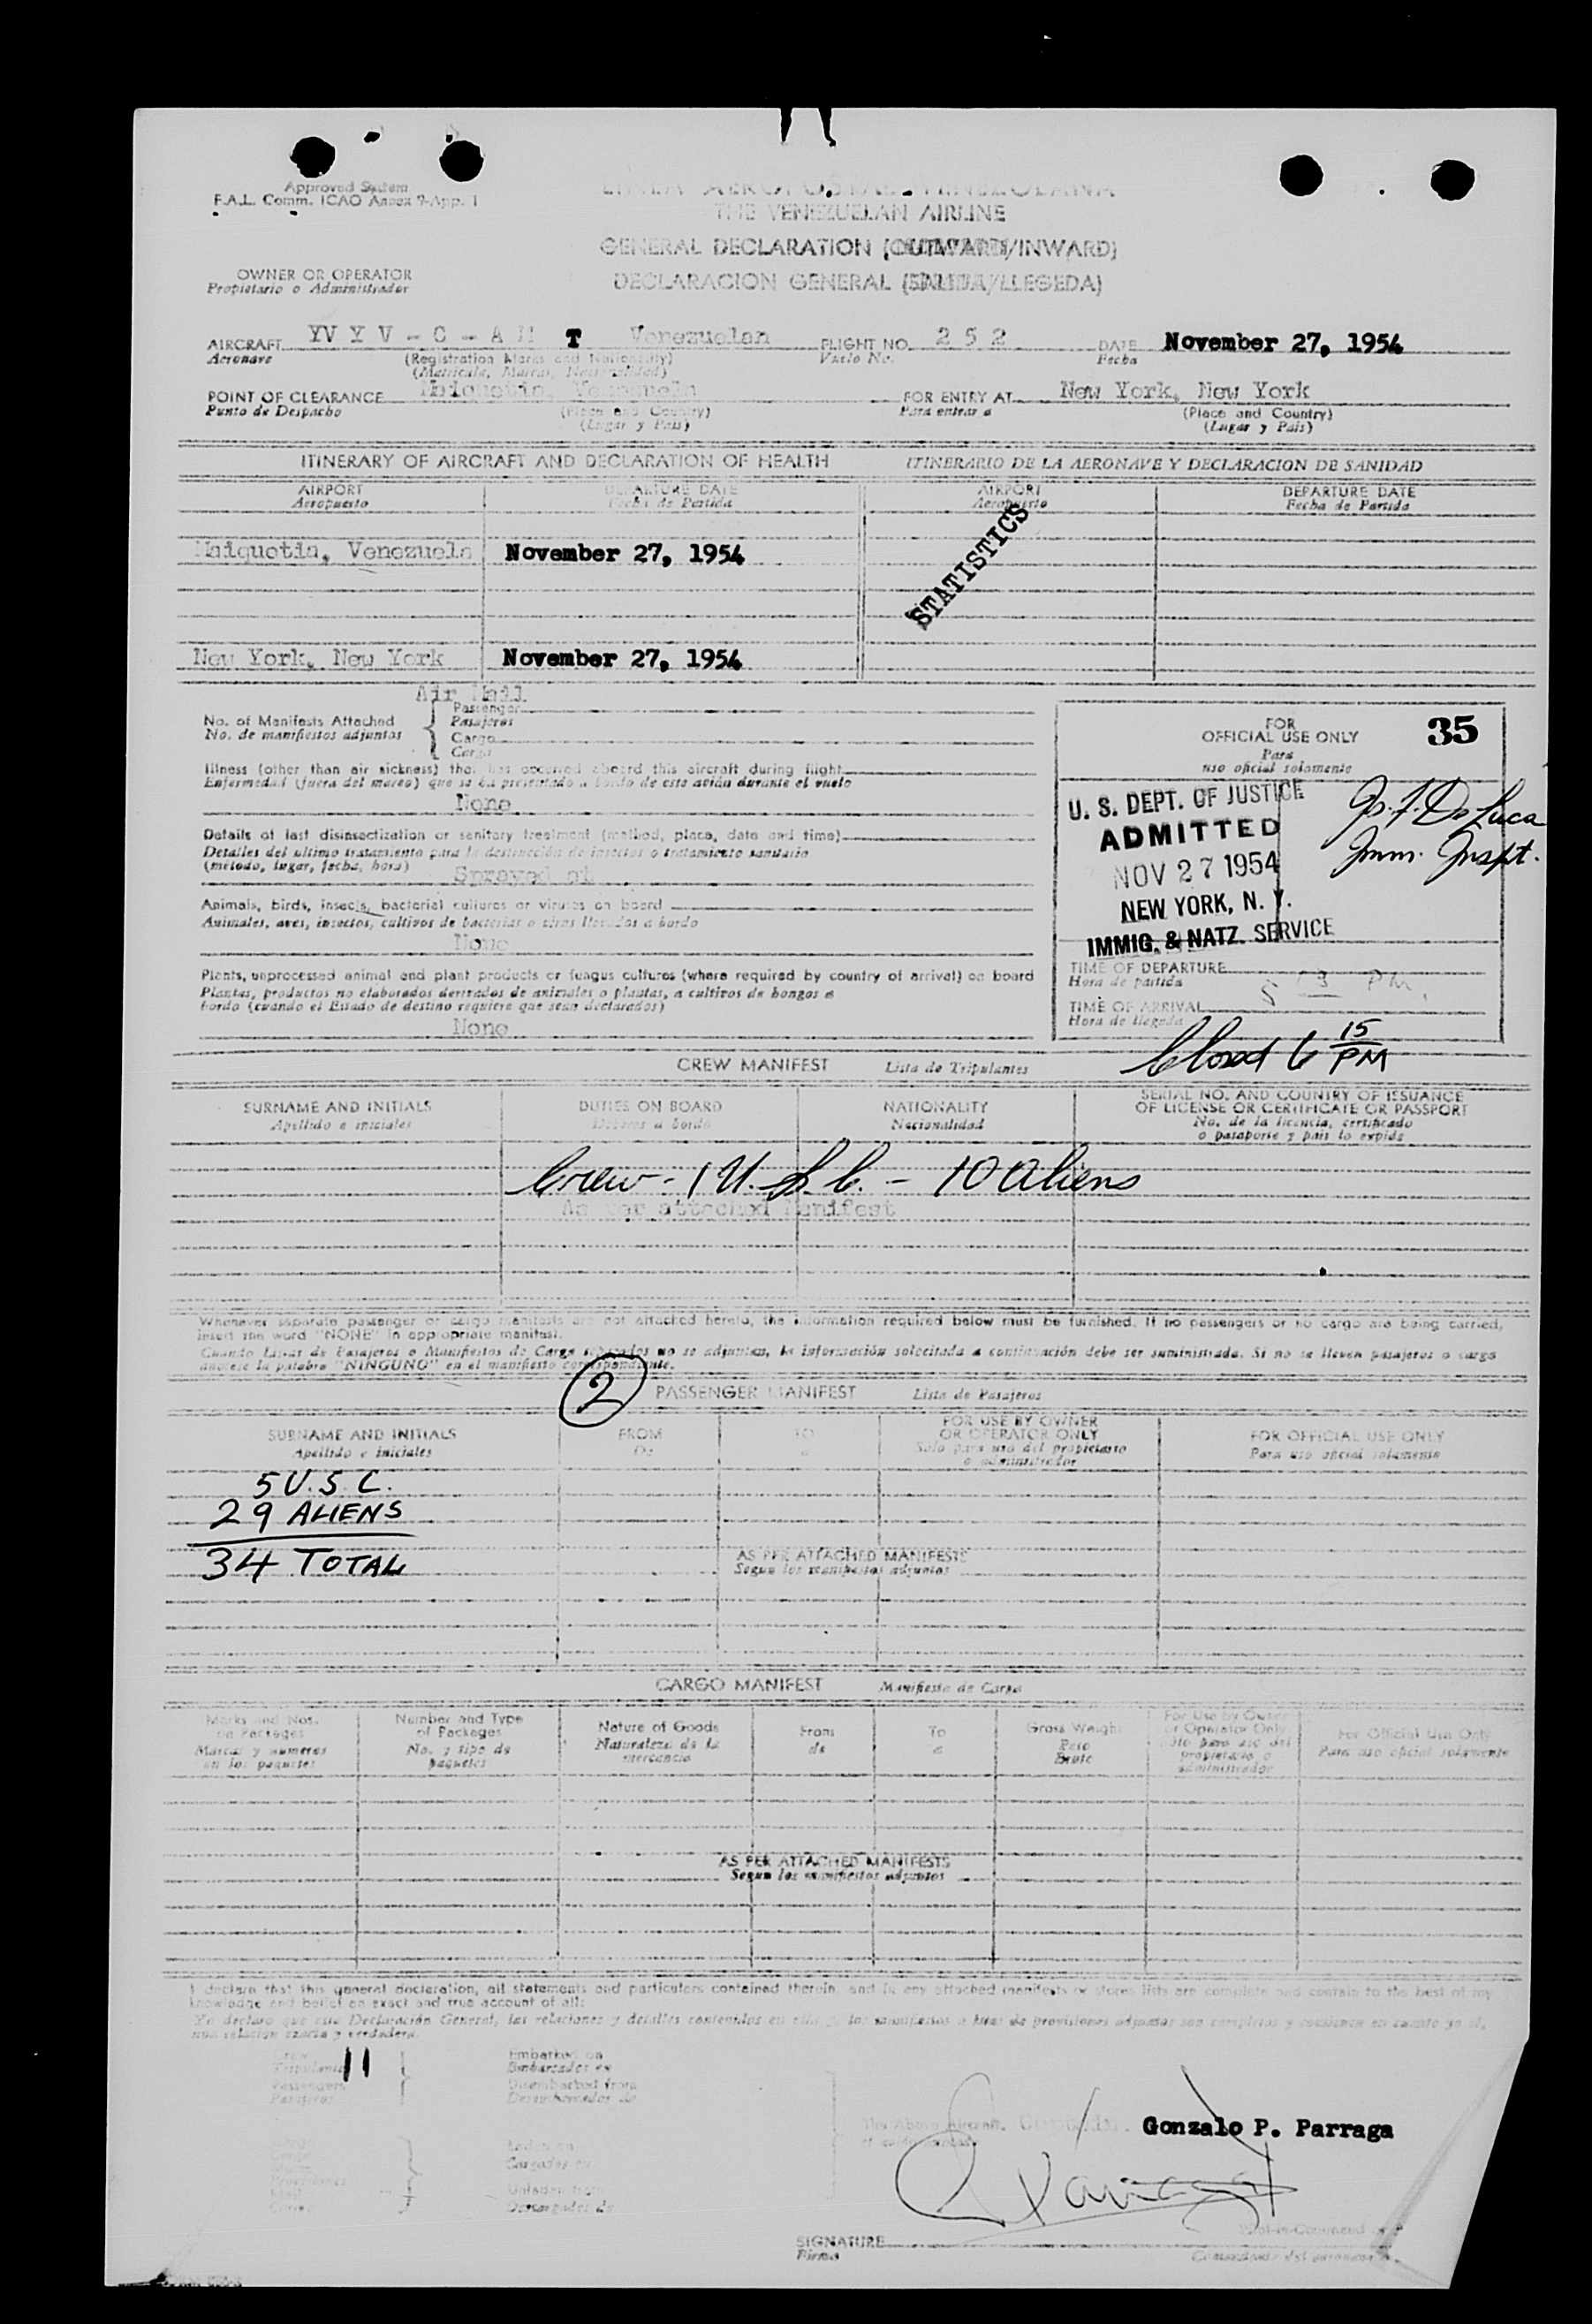 Approved System
F.A.L. Comm. ICAO Annex 9-App. 1
THE VENEZUELAN AIRLINE
GENERAL DECLARATION (OUTWARD/INWARD)
DECLARACION GENERAL (SALIDA/LLEGEDA)
OWNER OR OPERATOR
Propietario o Administrador
AIRCRAFT YV Y V - C - A T Venezuelan FLIGHT NO. 2 5 2 DATE November 27, 1954
Aeronave (Registration Marks and Nationality) Vuelo No. Fecha
(Matricula, Marcas, Nacionalidad)
POINT OF CLEARANCE Maiquetia, Venezuela FOR ENTRY AT New York, New York
Punto de Despacho (Place and Country) Para entrar a (Place and Country)
(Lugar y Pais) (Lugar y Pais)
ITINERARY OF AIRCRAFT AND DECLARATION OF HEALTH ITINERARIO DE LA AERONAVE Y DECLARACION DE SANIDAD
AIRPORT DEPARTURE DATE AIRPORT DEPARTURE DATE
Aeropuerto Fecha de Partida Aeropuerto Fecha de Partida
STATISTICS
Maiquetia, Venezuela November 27, 1954
New York, New York November 27, 1954
Air Mail
No. of Manifests Attached Passenger
No. de manifiestos adjuntos Pasajeros
Cargo
Carga
Illness (other than air sickness) that has occurred aboard this aircraft during flight
Enfermedad (fuera del mareo) que se ha presentado a bordo de este avión durante el vuelo
None
Details of last disinsectization or sanitary treatment (method, place, date and time)
Detalles del ultimo tratamiento para la destrucción de insectos o tratamiento sanitario
(metodo, lugar, fecha, hora)
Sprayed at
Animals, birds, insects, bacterial cultures or viruses on board
Animales, aves, insectos, cultivos de bacterias o virus llevados a bordo
None
Plants, unprocessed animal and plant products or fungus cultures (where required by country of arrival) on board
Plantas, productos no elaborados derivados de animales o plantas, a cultivos de hongos a
bordo (cuando el Estado de destino requiere que sean declarados)
None
FOR
OFFICIAL USE ONLY 35
Para
uso oficial solamente
U. S. DEPT. OF JUSTICE
ADMITTED
NOV 27 1954
NEW YORK, N. Y.
IMMIG. & NATZ. SERVICE
De Luca
Imm. Inspt.
TIME OF DEPARTURE
Hora de partida
PM
TIME OF ARRIVAL
Hora de llegada
Closed 6 15 PM
CREW MANIFEST Lista de Tripulantes
SURNAME AND INITIALS DUTIES ON BOARD NATIONALITY SERIAL NO. AND COUNTRY OF ISSUANCE
Apellido e iniciales Deberes a bordo Nacionalidad OF LICENSE OR CERTIFICATE OR PASSPORT
No. de la licencia, certificado
o pasaporte y pais lo expide
Crew - 1 U.S.C. - 10 aliens
As per attached Manifest
Whenever separate passenger or cargo manifests are not attached hereto, the information required below must be furnished. If no passengers or no cargo are being carried,
insert the word "NONE" in appropriate manifest.
Cuando Listas de Pasajeros o Manifiestos de Carga separados no se adjuntan, la información solecitada a continuación debe ser suministrada. Si no se lleven pasajeros o carga
anotese la palabra "NINGUNO" en el manifiesto correspondiente.
2 PASSENGER MANIFEST Lista de Pasajeros
SURNAME AND INITIALS FROM TO FOR USE BY OWNER OR OPERATOR ONLY FOR OFFICIAL USE ONLY
Apellido e iniciales De a Solo para uso del propietario o administrador Para uso oficial solamente
5 U.S.C.
29 ALIENS
34 TOTAL
AS PER ATTACHED MANIFESTS
Segun los manifiestos adjuntos
CARGO MANIFEST Manifiesto de Carga
Marks and Nos. on Packages Number and Type of Packages Nature of Goods From To Gross Weight For Use by Owner or Operator Only For Official Use Only
Marcas y numeros en los paquetes No. y tipo de paquetes Naturaleza de la mercancia de a Peso Bruto Slo para uso del propietario o administrador Para uso oficial solamente
AS PER ATTACHED MANIFESTS
Segun los manifiestos adjuntos
I declare that this general declaration, all statements and particulars contained therein, and in any attached manifests or stores lists are complete and contain to the best of my
knowledge and belief an exact and true account of all:
Crew Embarked on
Tripulantes 11 Embarcados en
Passengers Disembarked from
Pasajeros Desembarcados de
Cargados en
Unladen from
Descargados de
The Above Aircraft. Gonzalo P. Parraga
Pilot-in-Command
SIGNATURE
Firma